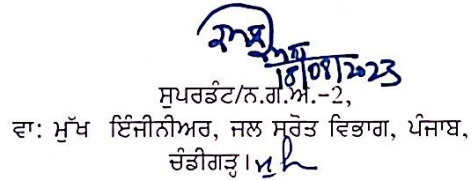 18/08/2023
ਸੁਪਰਡੰਟ/ਨ.ਗ.ਅ.-2,
ਵਾ: ਮੁੱਖ ਇੰਜੀਨੀਅਰ, ਜਲ ਸਰੋਤ ਵਿਭਾਗ, ਪੰਜਾਬ,
ਚੰਡੀਗੜ੍ਹ।